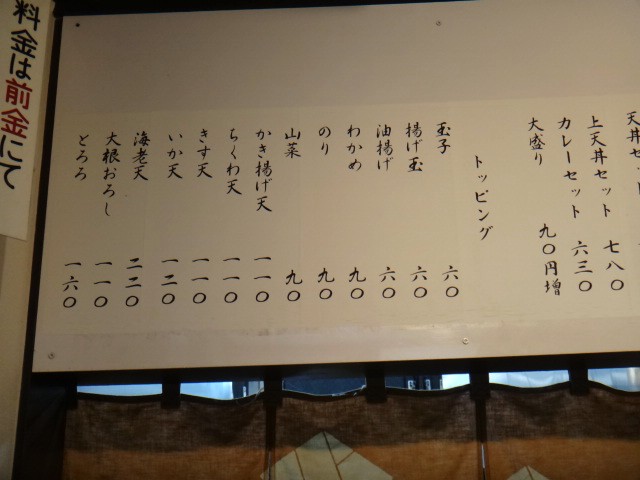 天丼セット
上天丼セット 七八〇
カレーセット 六三〇
大盛り 九〇円増
トッピング
玉子 六〇
揚げ玉 六〇
油揚げ 六〇
わかめ 九〇
のり 九〇
山菜 九〇
かき揚げ天 一一〇
ちくわ天 一一〇
きす天 一一〇
いか天 一二〇
海老天 二二〇
大根おろし 一一〇
とろろ 一六〇
料金は前金にて